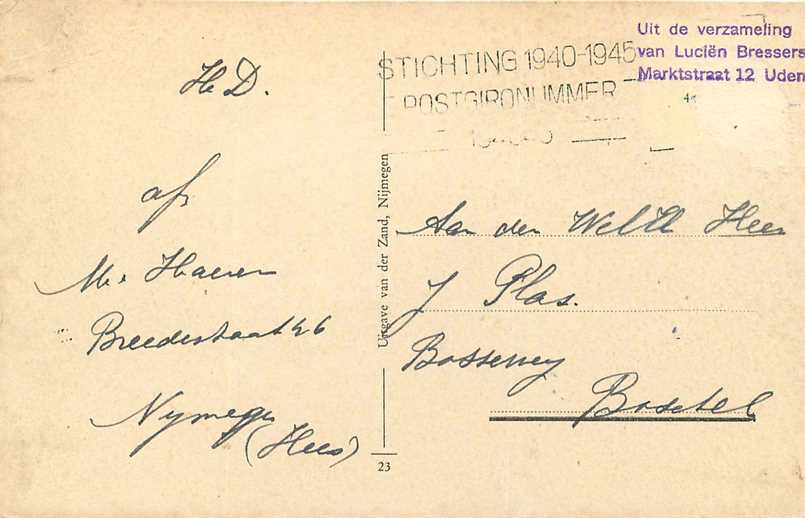 Uit de verzameling
van Luciën Bressers
Marktstraat 12 Uden
STICHTING 1940-1945
POSTGIRONUMMER
H. D.
afz
Haeren
Breedestraat 46
Nymegen
(Hees)
Uitgave van der Zand, Nijmegen
23
Aan den WelEd Heer
J Plas.
Bosseweg
Boxtel